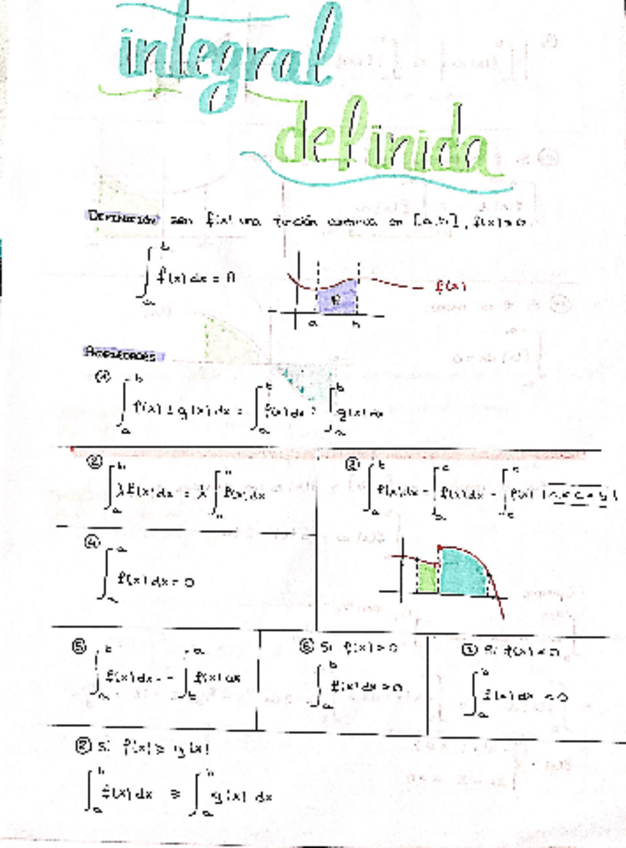 integral
definida
DEFINICIÓN sea f(x) una función continua en [a,b], f(x)≥0
∫_a^b f(x) dx = A
f(x)
a b
PROPIEDADES
① ∫_a^b f(x) ± g(x) dx = ∫_a^b f(x) dx ± ∫_a^b g(x) dx
② ∫_a^b λ f(x) dx = λ ∫_a^b f(x) dx
③ ∫_a^b f(x) dx = ∫ f(x) dx ∫ f(x)
④ ∫_a^a f(x) dx = 0
⑤ ∫_a^b f(x) dx = - ∫_b^a f(x) dx
⑥ Si f(x) > 0
∫_a^b f(x) dx > 0
⑦ Si f(x) < 0
∫_a^b f(x) dx < 0
⑧ Si f(x) ≥ g(x)
∫_a^b f(x) dx ≥ ∫_a^b g(x) dx